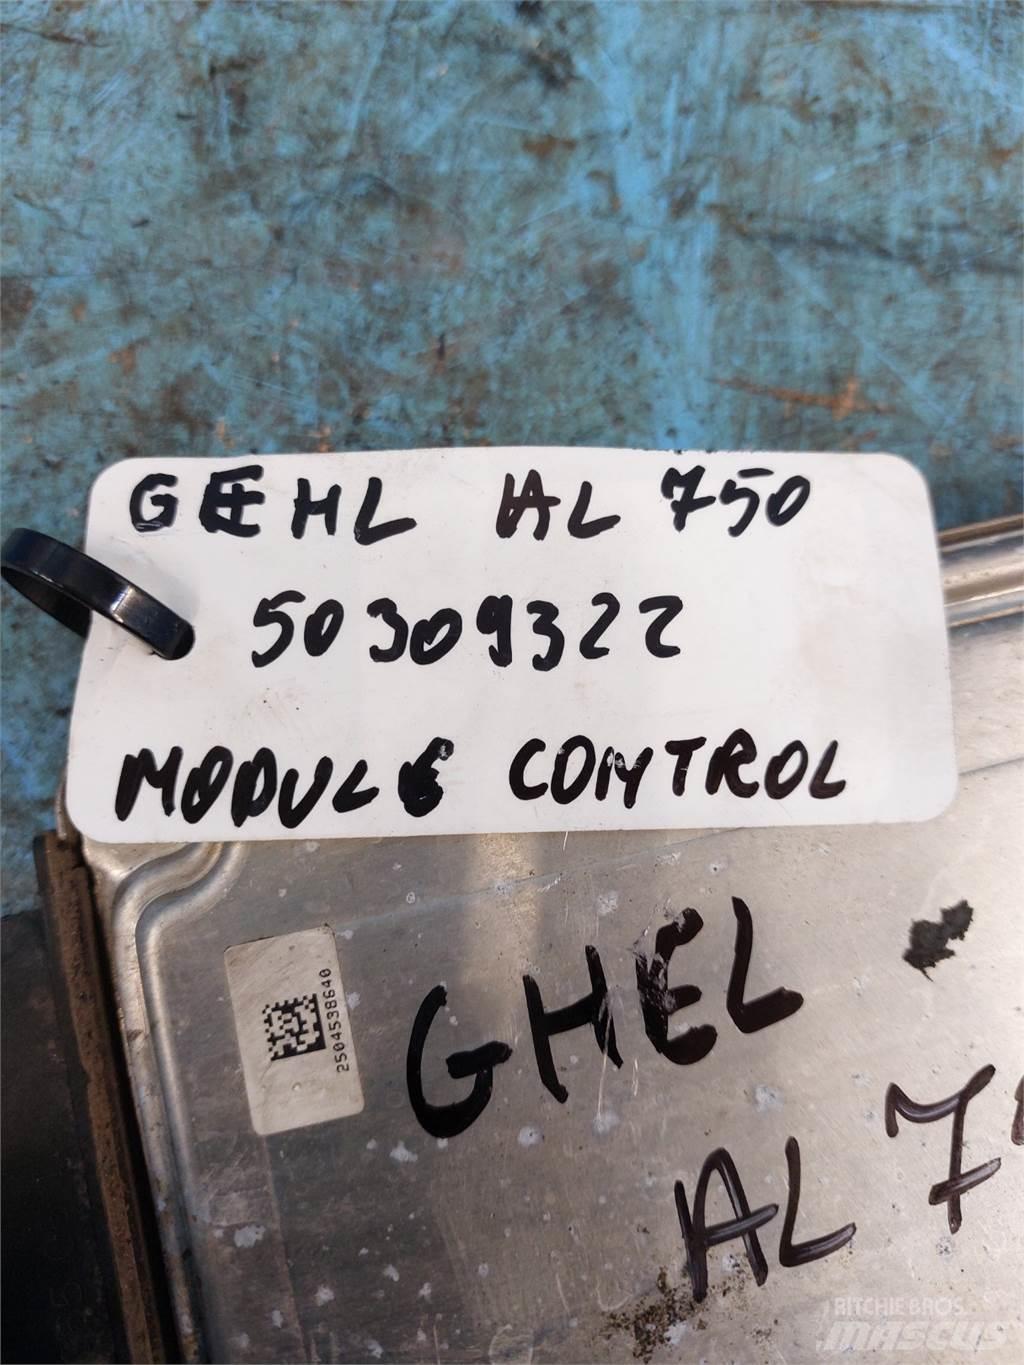 GEHL AL 750
50309322
MODULE CONTROL
2504538640
GHEL
AL 7
RITCHIE BROS.
MASCUS